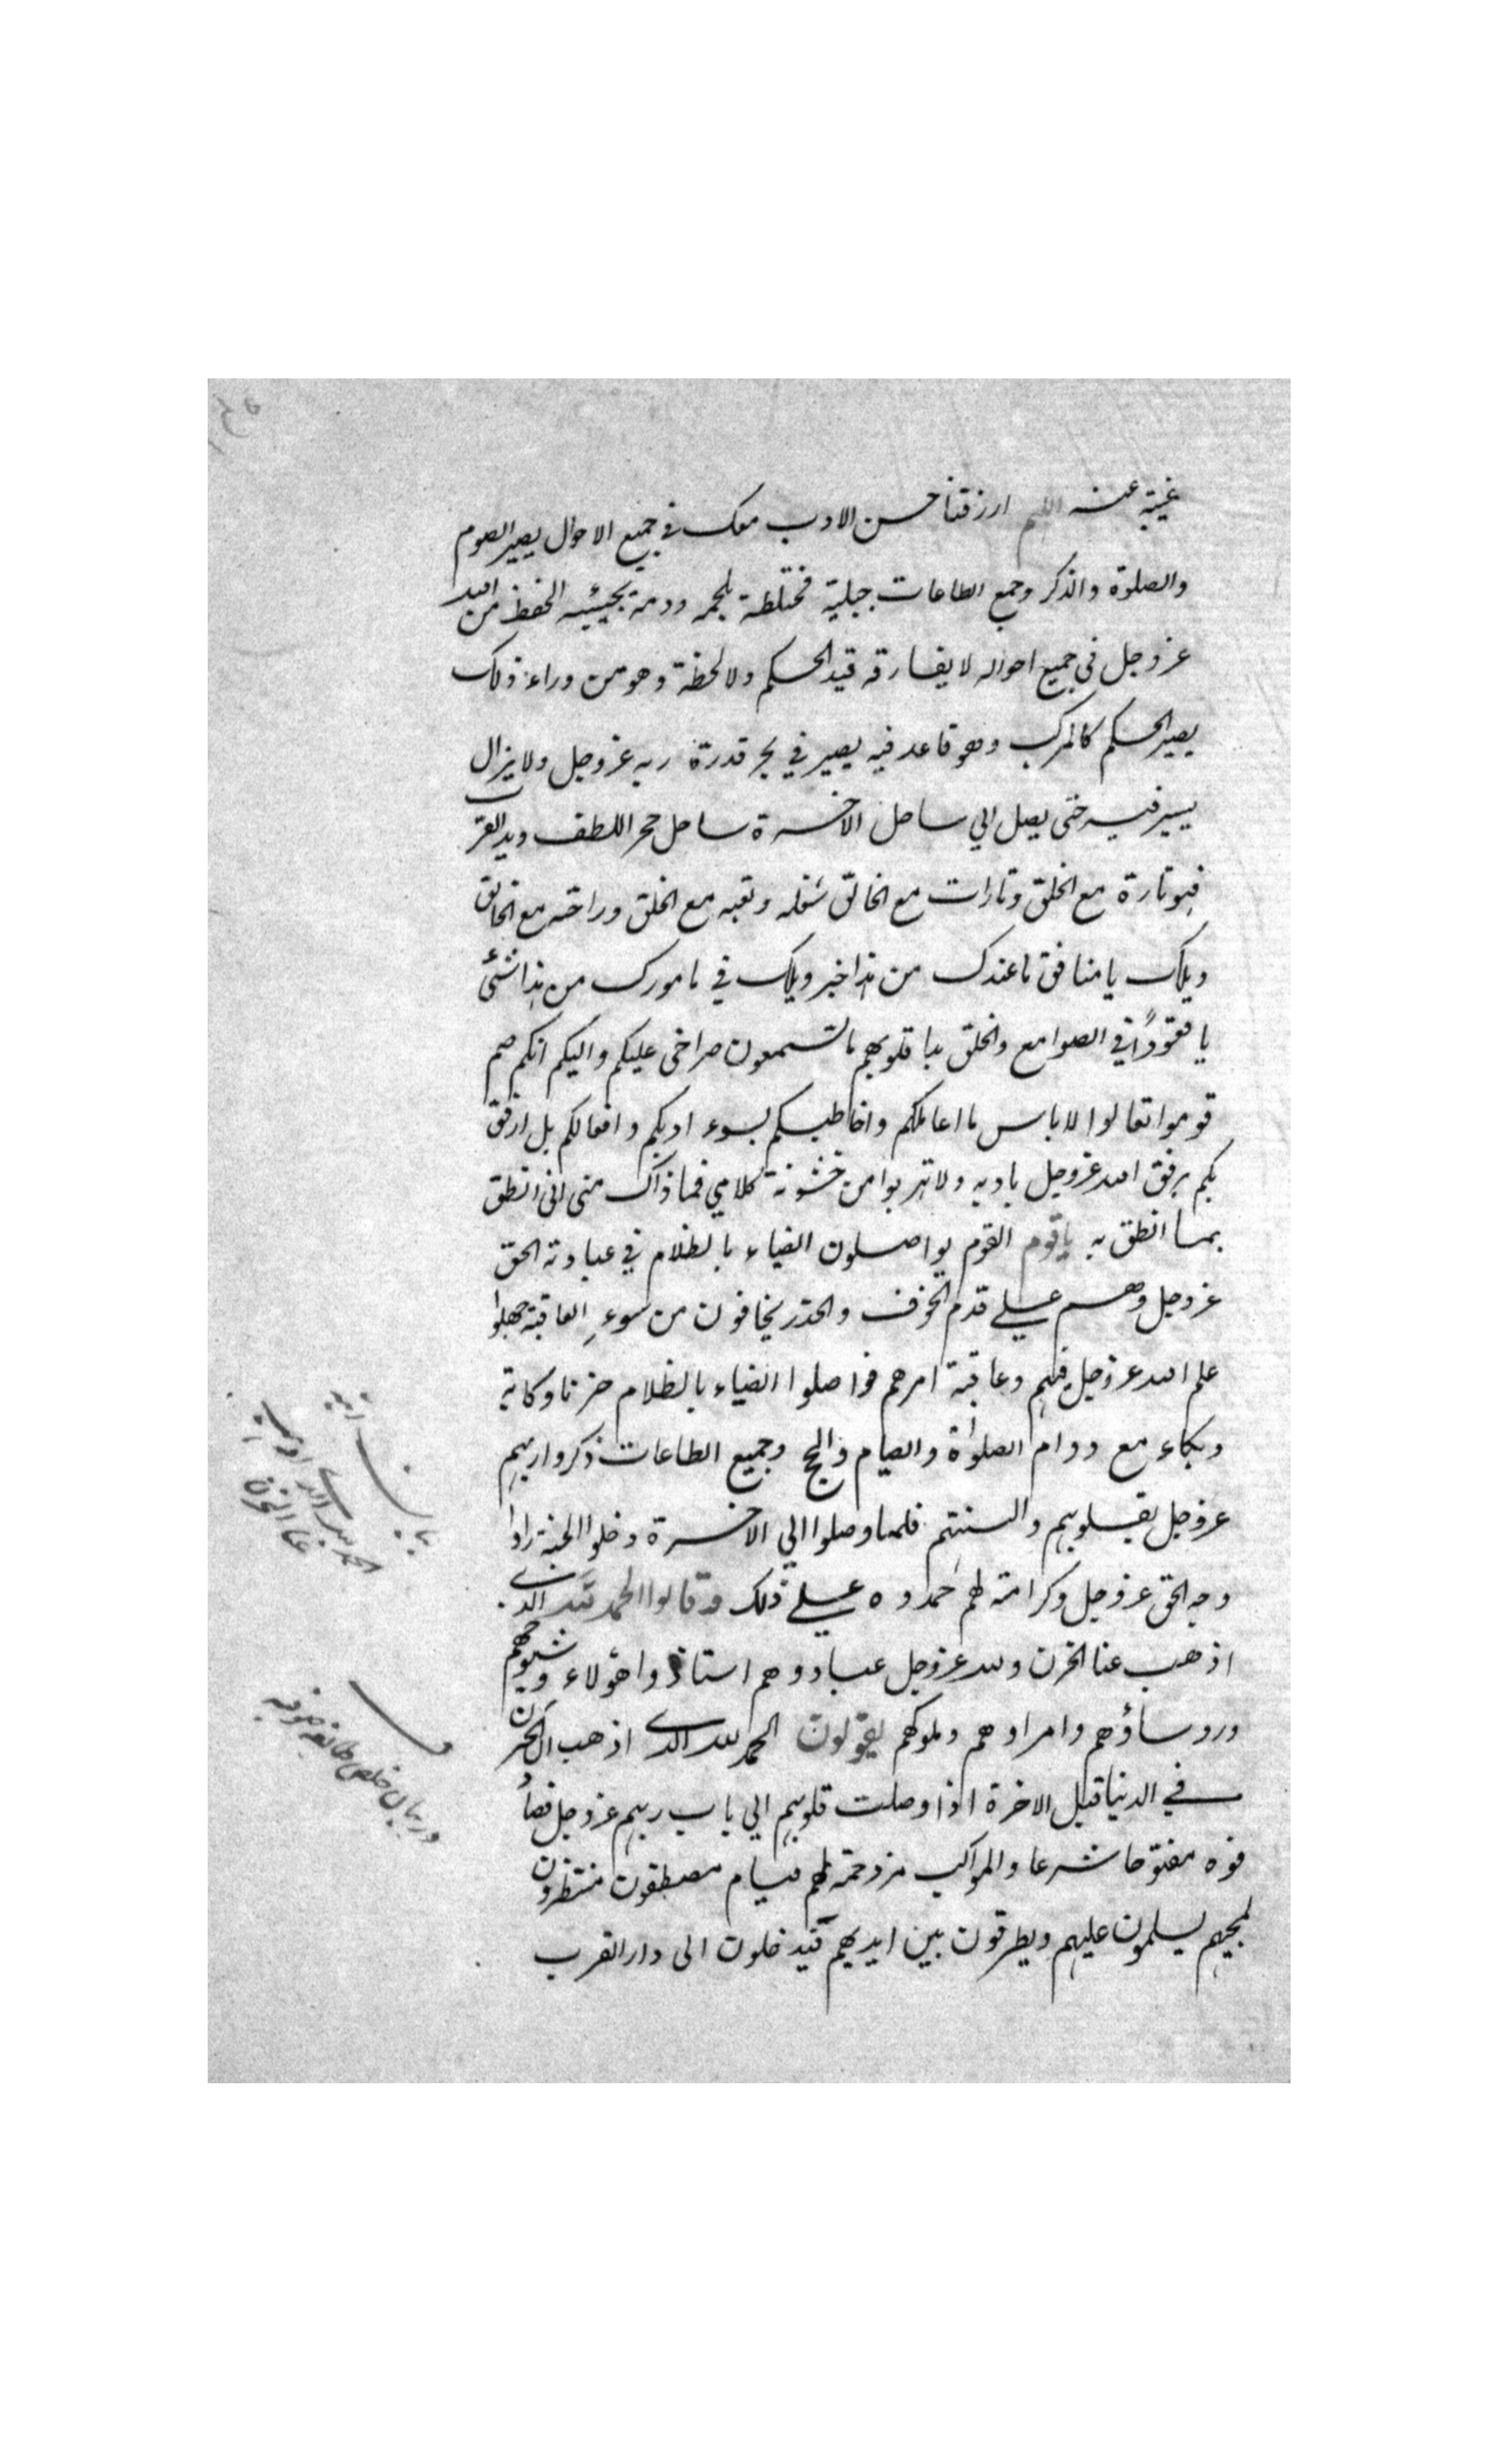 غيبته عنه اللهم ارزقنا حسن الادب معك في جميع الاحوال يصير الصوم
والصلوة والذكر وجميع الطاعات جبلية مختلطة بلحمه ودمه ثم يجيئه الحفظ من الله
عز وجل في جميع احواله لا يفارقه قيد الحكم ولا لحظة وهو من وراء ذلك
يصير الحكم كالمركب وهو قاعد فيه يصير في بحر قدرة ربه عز وجل ولا يزال
يسير فيه حتى يصل الي ساحل الاخرة ساحل بحر اللطف ويد القرب
فهو تارة مع الخلق وتارات مع الخالق شغله وتعبه مع الخلق وراحته مع الخالق
ويلك يا منافق ما عندك من هذا خبر ويلك في مامورك من هذا شئ
يا قعودًا في الصوامع والخلق قلوبهم ما تسمعون صراخي عليكم واليكم انكم صم
قوموا تعالوا لا باس ما اعاملكم واخاطبكم بسوء ادبكم وافعالكم بل ارفق
بكم برفق الله عز وجل باديه ولا تهربوا من خشونة كلامي فما ذاك مني اني انطق
بما انطق به يا قوم القوم يواصلون الضياء بالظلام في عبادته الحق
عز وجل وهم علي قدم الخوف والحذر يخافون من سوء العاقبة جهلوا
علم الله عز وجل فيهم وعاقبة امرهم فواصلوا الضياء بالظلام حزنا وكابة
وبكاء مع دوام الصلواة والصيام والحج وجميع الطاعات ذكروا ربهم
عز وجل بقلوبهم والسنتهم فلما وصلوا الي الاخرة دخلوا الجنة راوا
وجه الحق عز وجل وكرامته لهم حمدوه علي ذلك وقالوا الحمد لله الذي
اذهب عنا الحزن ولله عز وجل عباد وهم استاذوا هؤلاء وشيوخهم
وروساؤهم وامراوهم وملوكهم يقولون الحمد لله الذي اذهب الحزن
في الدنيا قبل الاخرة اذا وصلت قلوبهم الي باب ربهم عز وجل فصا
فوه مفتوحا شرعا والمواكب مزدحمة لهم قيام مصطفون منتظرون
لمجيهم يسلمون عليهم ويطرقون بين ايديهم فيدخلون الى دار القرب
بيان آية
الحمد لله الذي اذهب
عنا الحزن
در بيان خلص طائفه صوفيه